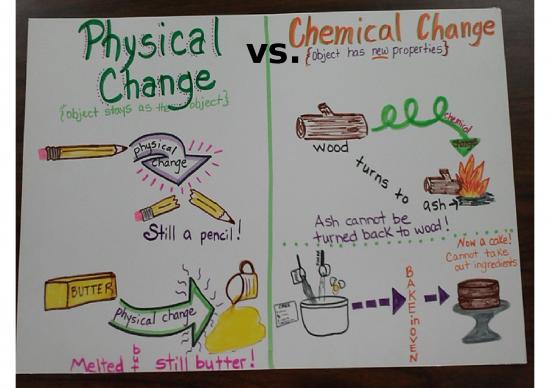 Physical
Change
{object stays as the object}
vs.
Chemical Change
{Object has new properties}
physical
change
Still a pencil!
BUTTER
physical change
Melted but still butter!
wood
chemical
change
turns to
ash
Ash cannot be
turned back to wood!
CAKE
BAKE in OVEN
Now a cake!
Cannot take
out ingredients